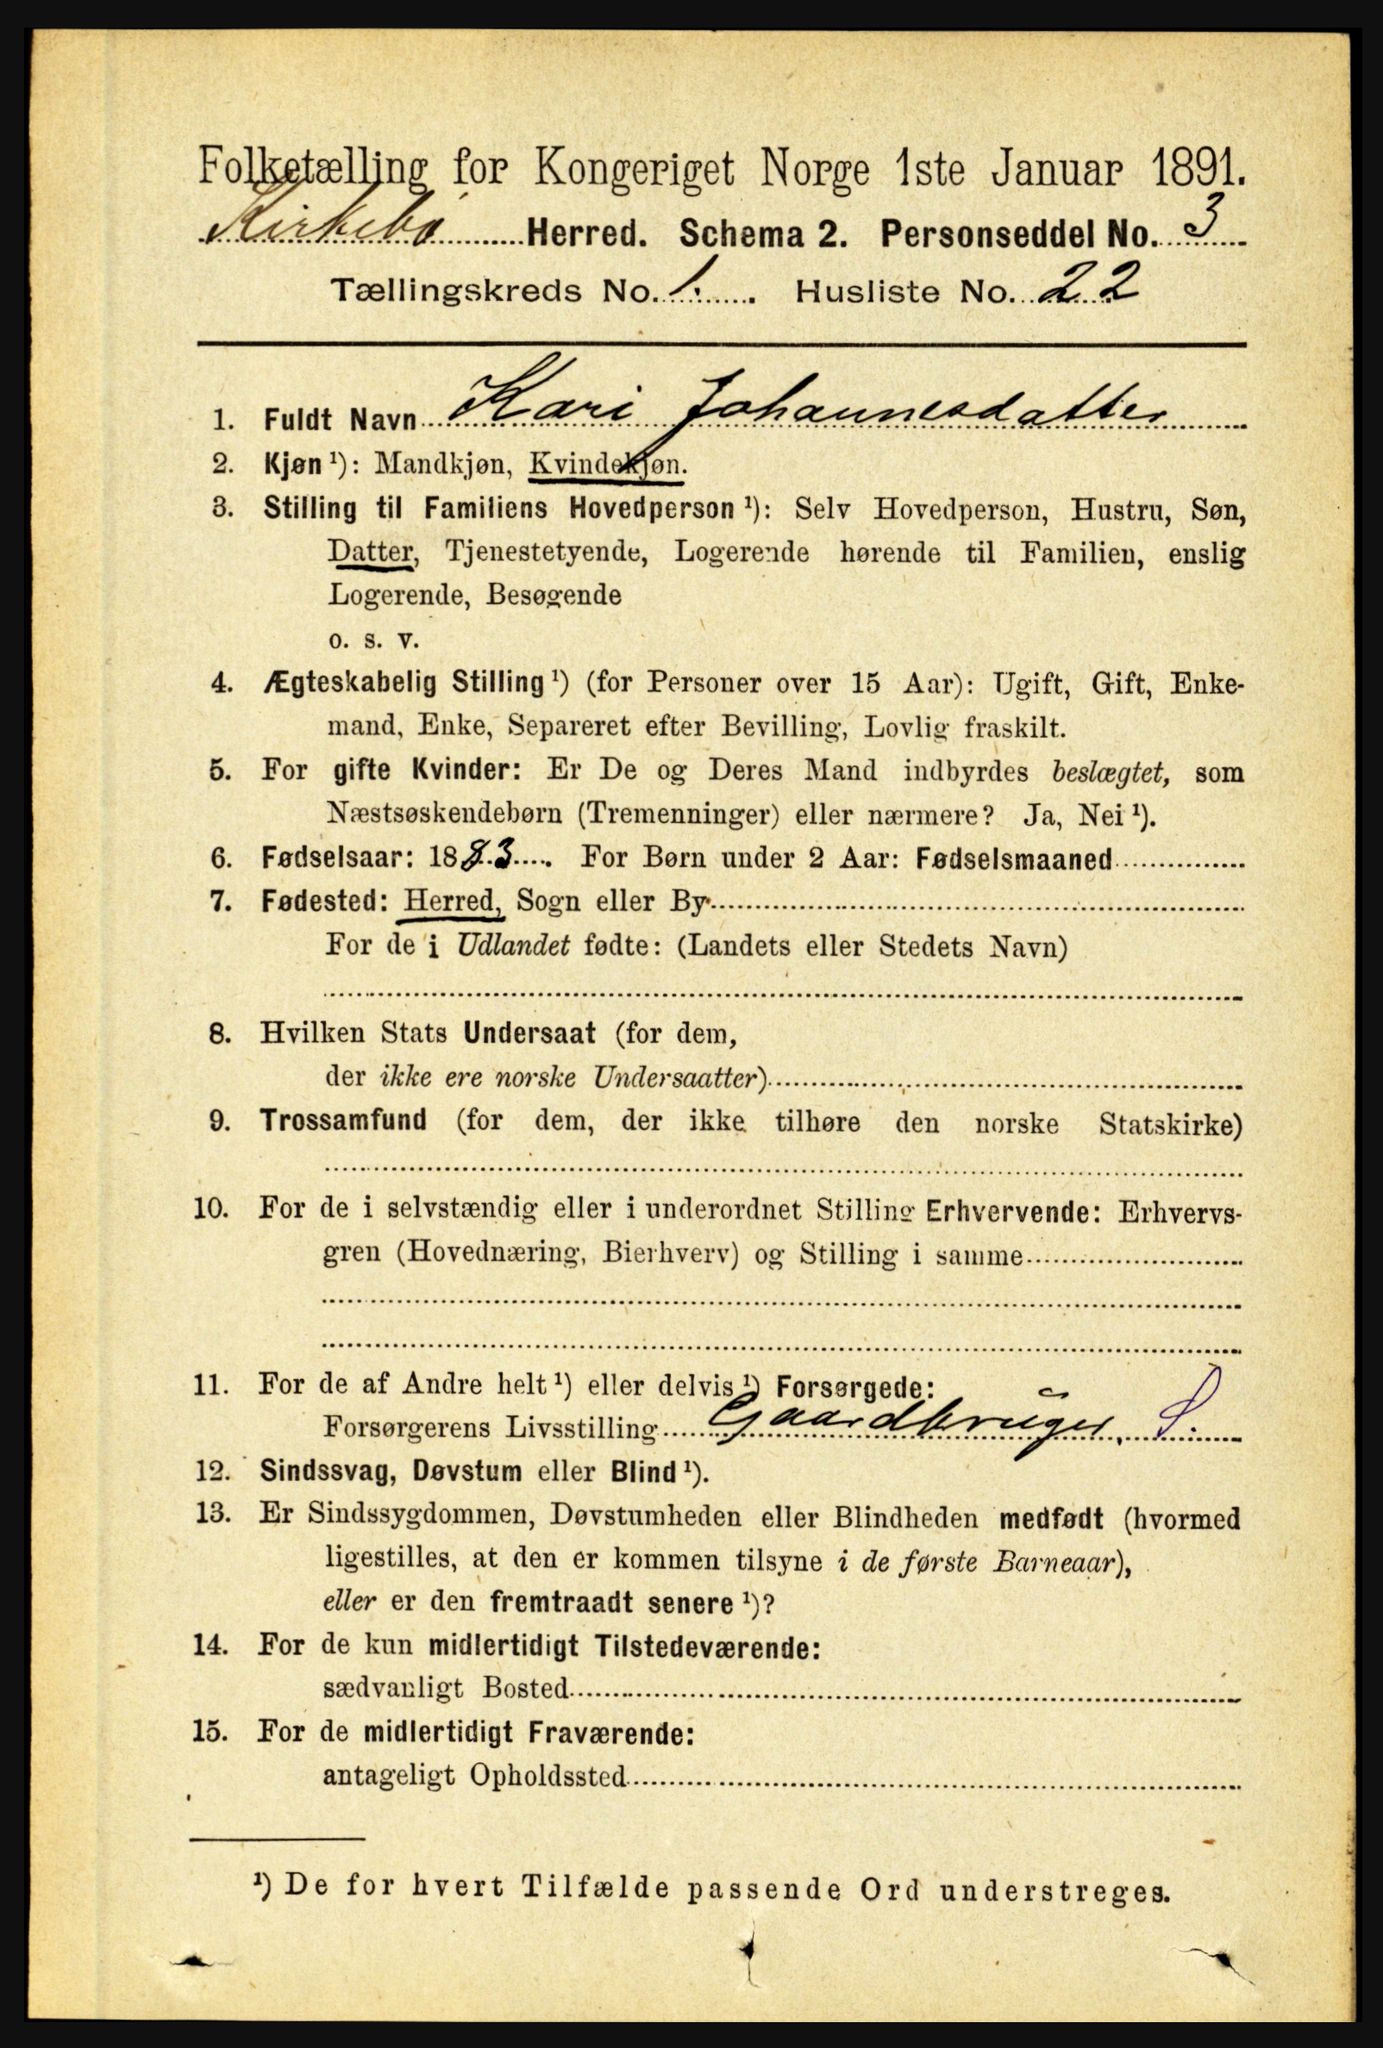 Folketælling for Kongeriget Norge 1ste Januar 1891.
Kirkebø Herred. Schema 2. Personseddel No. 3
Tællingskreds No. 1. Husliste No. 22
1. Fuldt Navn Kari Johannesdatter
2. Kjøn ¹): Mandkjøn, Kvindekjøn.
3. Stilling til Familiens Hovedperson ¹): Selv Hovedperson, Hustru, Søn,
Datter, Tjenestetyende, Logerende hørende til Familien, enslig
Logerende, Besøgende
o. s. v.
4. Ægteskabelig Stilling ¹) (for Personer over 15 Aar): Ugift, Gift, Enke-
mand, Enke, Separeret efter Bevilling, Lovlig fraskilt.
5. For gifte Kvinder: Er De og Deres Mand indbyrdes beslægtet, som
Næstsøskendebørn (Tremenninger) eller nærmere? Ja, Nei ¹).
6. Fødselsaar: 1883. For Børn under 2 Aar: Fødselsmaaned
7. Fødested: Herred, Sogn eller By
For de i Udlandet fødte: (Landets eller Stedets Navn)
8. Hvilken Stats Undersaat (for dem,
der ikke ere norske Undersaatter)
9. Trossamfund (for dem, der ikke tilhøre den norske Statskirke)
10. For de i selvstændig eller i underordnet Stilling Erhvervende: Erhvervs-
gren (Hovednæring, Bierhverv) og Stilling i samme
11. For de af Andre helt ¹) eller delvis ¹) Forsørgede:
Forsørgerens Livsstilling Gaardbruger, S.
12. Sindssvag, Døvstum eller Blind ¹).
13. Er Sindssygdommen, Døvstumheden eller Blindheden medfødt (hvormed
ligestilles, at den er kommen tilsyne i de første Barneaar),
eller er den fremtraadt senere ¹)?
14. For de kun midlertidigt Tilstedeværende:
sædvanligt Bosted
15. For de midlertidigt Fraværende:
antageligt Opholdssted
¹) De for hvert Tilfælde passende Ord understreges.